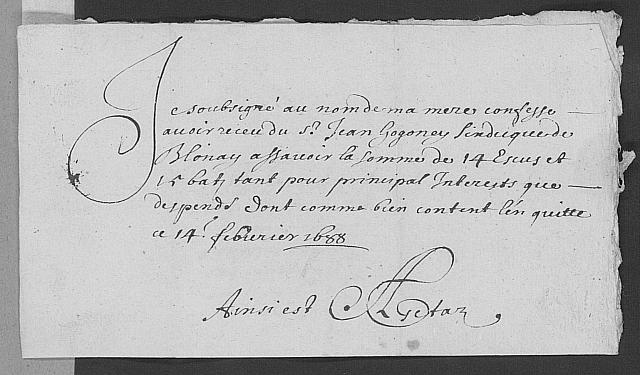 Je soubsigné au nom de ma mere confesse
avoir receu du Sr. Jean Gogoney sindicque de
Blonay assavoir la somme de 14 Escus et
15 batz tant pour principal Interests que
despends dont comme bien content l'en quitte
ce 14e. febvrier 1688
Ainsi est